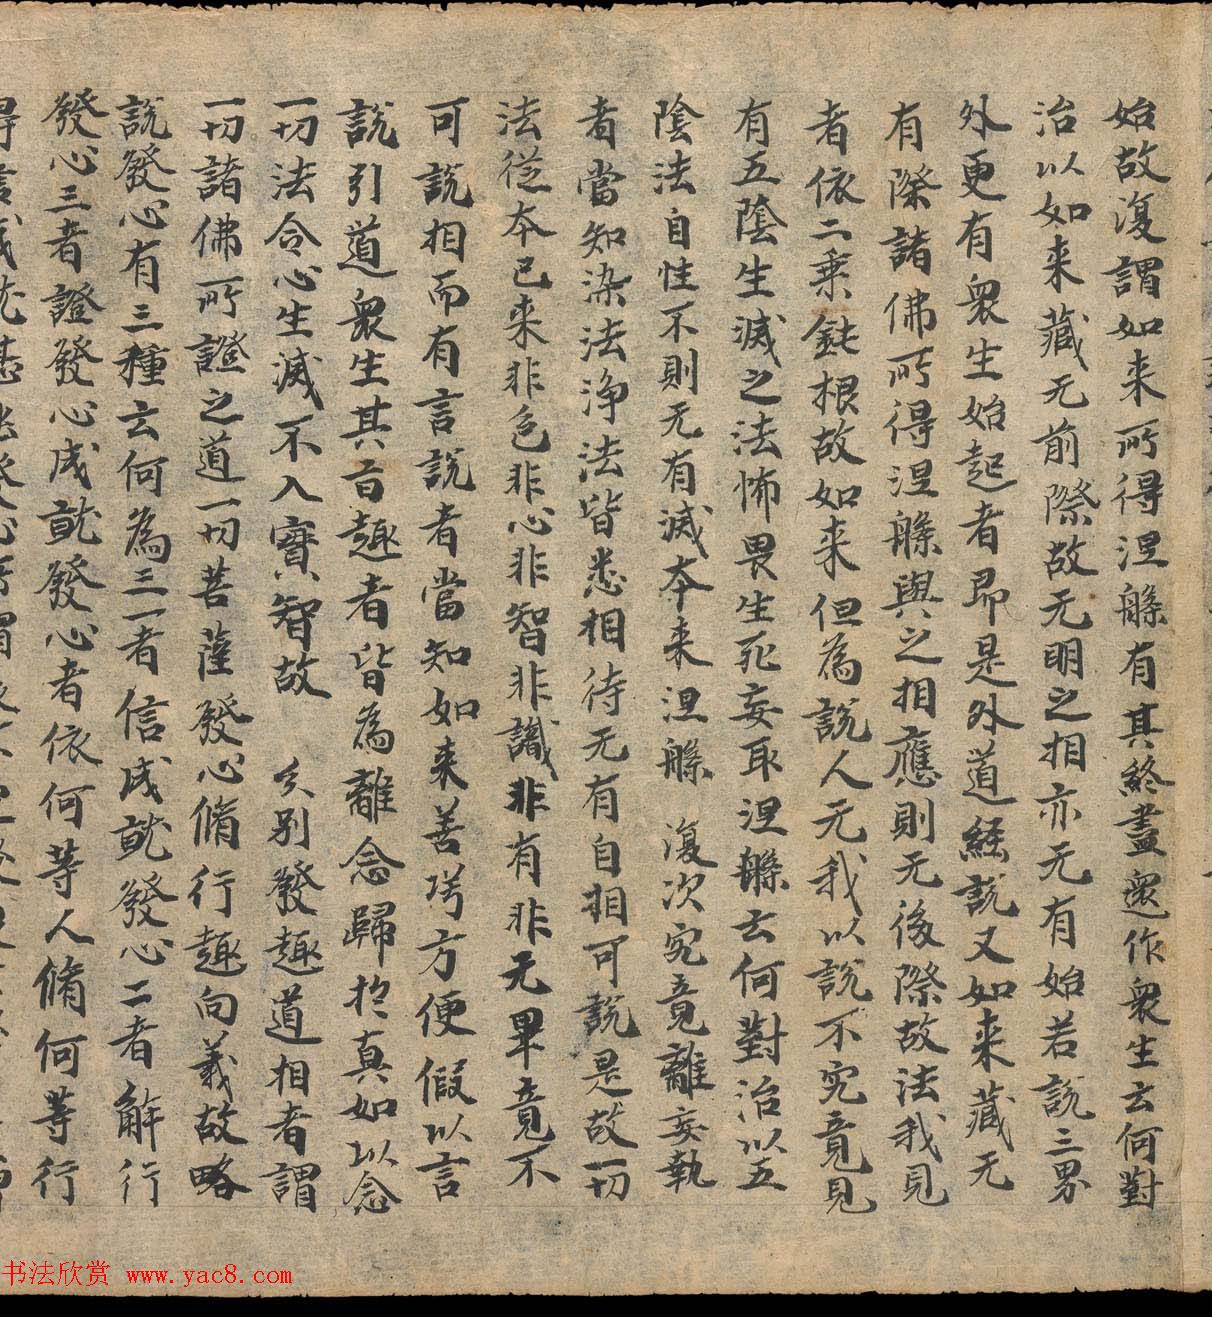 始故復謂如来所得涅槃有其終盡還作衆生云何對
治以如来藏无前際故无明之相亦无有始若説三界
外更有衆生始起者即是外道經説又如来藏无
有際諸佛所得涅槃與之相應則无後際故法我見
者依二乘鈍根故如来但為説人无我以説不究竟見
有五陰生滅之法怖畏生死妄取涅槃云何對治以五
陰法自性不則无有滅本来涅槃 復次究竟離妄執
者當知染法浄法皆悉相待无有自相可説是故一切
法從本已来非色非心非智非識非有非无畢竟不
可説相而有言説者當知如来善巧方便假以言
説引道衆生其旨趣者皆為離念歸於真如以念
一切法令心生滅不入實智故 分別發趣道相者謂
一切諸佛所證之道一切菩薩發心脩行趣向義故略
説發心有三種云何為三一者信成就發心二者解行
發心三者證發心成就發心者依何等人脩何等行
书法欣赏 www.yac8.com